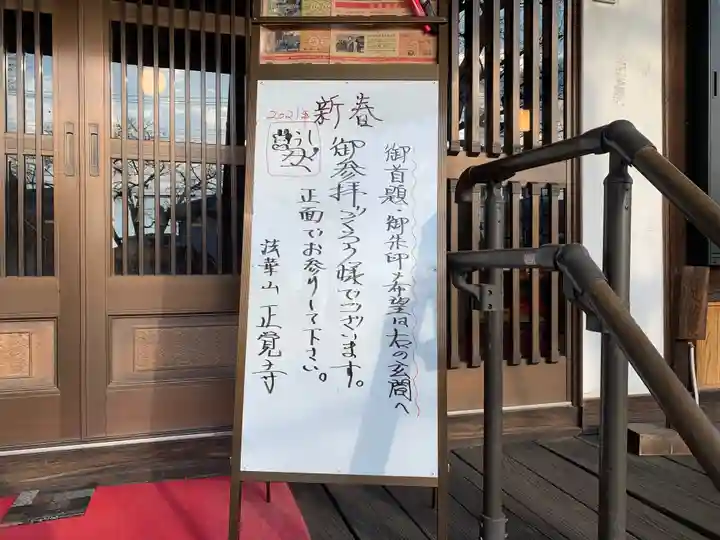 新春
2021年
うし
丑
御首題・御朱印希望は右の玄関へ
御参拝ごくろう様でございます。
正面でお参りして下さい。
法華山 正覚寺